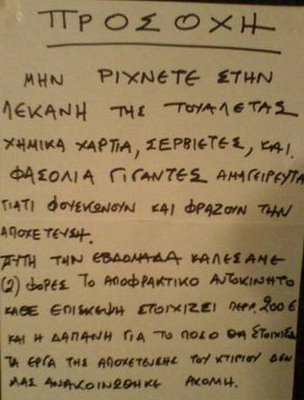 ΠΡΟΣΟΧΗ
ΜΗΝ ΡΙΧΝΕΤΕ ΣΤΗΝ
ΛΕΚΑΝΗ ΤΗΣ ΤΟΥΑΛΕΤΑΣ
ΧΗΜΙΚΑ ΧΑΡΤΙΑ, ΣΕΡΒΙΕΤΕΣ, ΚΑΙ
ΦΑΣΟΛΙΑ ΓΙΓΑΝΤΕΣ ΑΜΑΓΕΙΡΕΥΤΑ
ΓΙΑΤΙ ΦΟΥΣΚΩΝΟΥΝ ΚΑΙ ΦΡΑΖΟΥΝ ΤΗΝ
ΑΠΟΧΕΤΕΥΣΗ.
ΑΥΤΗ ΤΗΝ ΕΒΔΟΜΑΔΑ ΚΑΛΕΣΑΜΕ
(2) ΦΟΡΕΣ ΤΟ ΑΠΟΦΡΑΚΤΙΚΟ ΑΥΤΟΚΙΝΗΤΟ
ΚΑΘΕ ΕΠΙΣΚΕΨΗ ΣΤΟΙΧΙΖΕΙ ΠΕΡΡ. 200 €
ΚΑΙ Η ΔΑΠΑΝΗ ΓΙΑ ΤΟ ΠΟΣΟ ΘΑ ΣΤΟΙΧΙΣΟΥΝ
ΤΑ ΕΡΓΑ ΤΗΣ ΑΠΟΧΕΤΕΥΣΗΣ ΤΟΥ ΚΤΙΡΙΟΥ ΔΕΝ
ΜΑΣ ΑΝΑΚΟΙΝΩΘΗΚΕ ΑΚΟΜΗ.